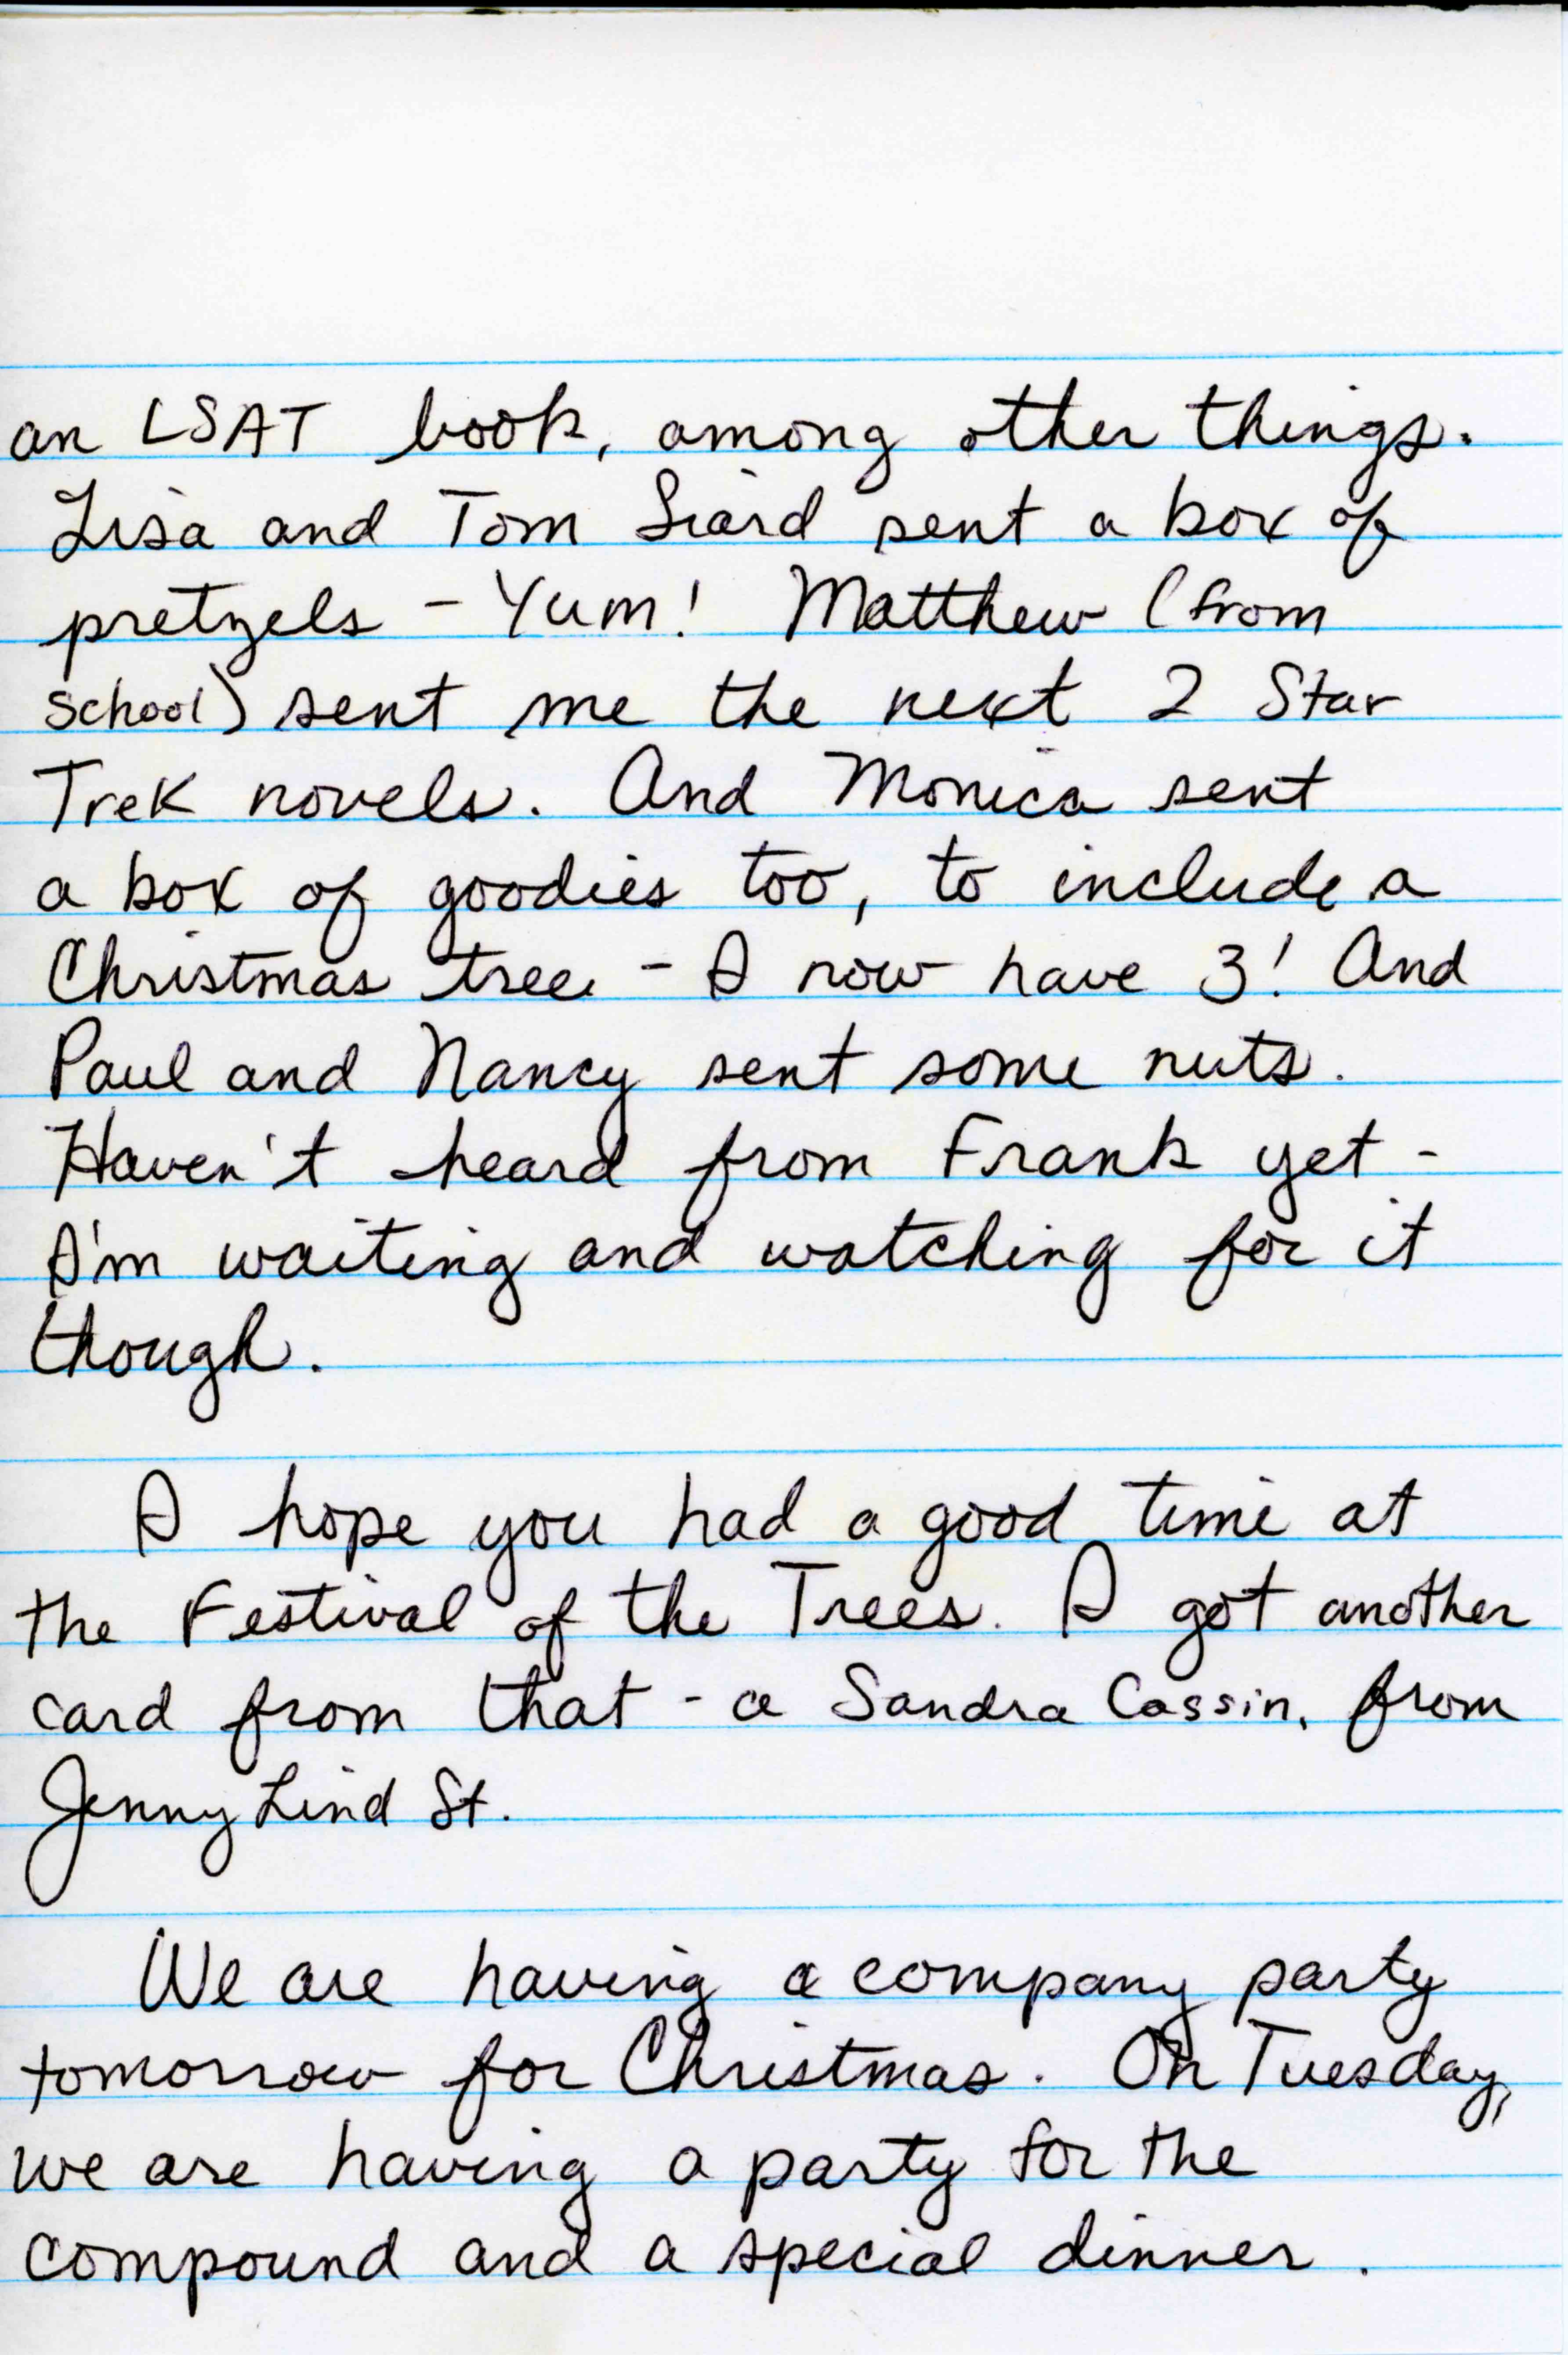 an LSAT book, among other things.
Lisa and Tom Siard sent a box of
pretzels - Yum! Matthew (from
school) sent me the next 2 Star
Trek novels. And Monica sent
a box of goodies too, to include a
Christmas tree - I now have 3! And
Paul and Nancy sent some nuts.
Haven't heard from Frank yet -
I'm waiting and watching for it
though.
I hope you had a good time at
the Festival of the Trees. I got another
card from that - a Sandra Cassin, from
Jenny Lind St.
We are having a company party
tomorrow for Christmas. On Tuesday,
we are having a party for the
compound and a special dinner.